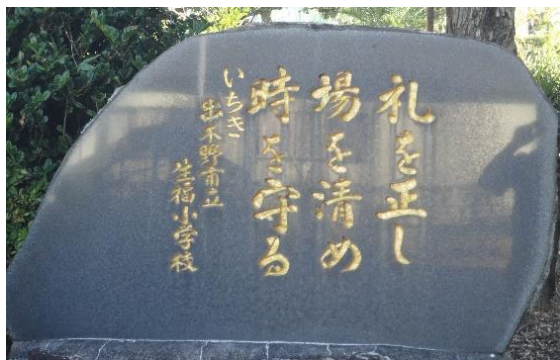 礼を正し
場を清め
時を守る
いちき
串木野市立
生福小学校